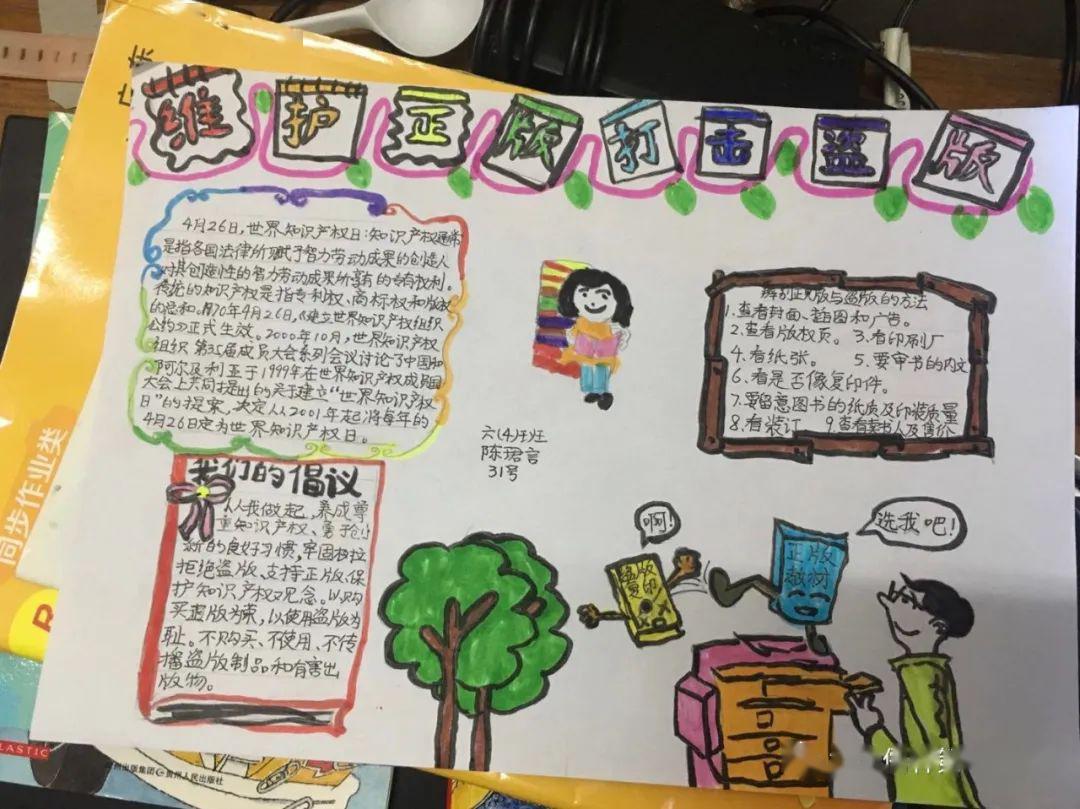 维护正版打击盗版
4月26日,世界知识产权日:知识产权通常
是指各国法律所赋予智力劳动成果的创造人
对其创造性的智力劳动成果所享有的专有权利。
传统的知识产权是指专利权、商标权和版权
的总和。1970年4月26日,《建立世界知识产权组织
公约》正式生效。2000年10月,世界知识产权
组织第35届成员大会系列会议讨论了中国和
阿尔及利亚于1999年在世界知识产权成员国
大会上共同提出的关于建立“世界知识产权
日”的提案,决定从2001年起将每年的
4月26日定为世界知识产权日。
辨别正版与盗版的方法
1.查看封面、插图和广告。
2.查看版权页。 3.看印刷厂
4.看纸张。 5.要审书的内文
6.看是否像复印件。
7.要留意图书的纸质及印装质量
8.看装订 9.查看卖书人及售价
六(4)班
陈珺言
31号
我们的倡议
从我做起,养成尊
重知识产权、勇于创
新的良好习惯,牢固树立
拒绝盗版、支持正版、保
护知识产权观念。以购
买正版为荣,以使用盗版为
耻。不购买、不使用、不传
播盗版制品和有害出
版物。
啊!
选我吧!
盗版
复印
正版
教材
同步作业类
LASTIC
出版集团 贵州人民出版社